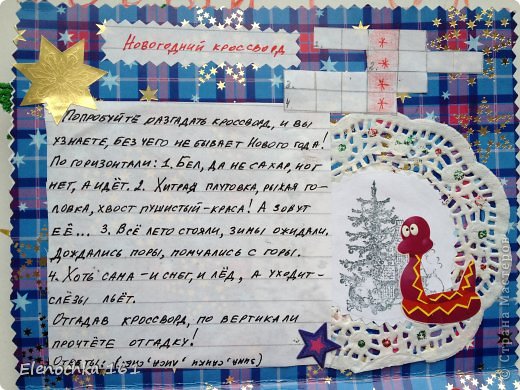 Новогодний кроссворд
2.
3.
4
Попробуйте разгадать кроссворд, и вы
узнаете, без чего не бывает Нового года!
По горизонтали: 1. Бел, да не сахар, ног
нет, а идёт. 2. Хитрая плутовка, рыжая го-
ловка, хвост пушистый-краса! А зовут
её... 3. Всё лето стояли, зимы ожидали.
Дождались поры, помчались с горы.
4. Хоть сама - и снег, и лёд, а уходит-
слёзы льёт.
Отгадав кроссворд, по вертикали
прочтёте отгадку!
Ответы: (зима, санки, лиса, снег)
Elenochka 161
© Страна Мастеров